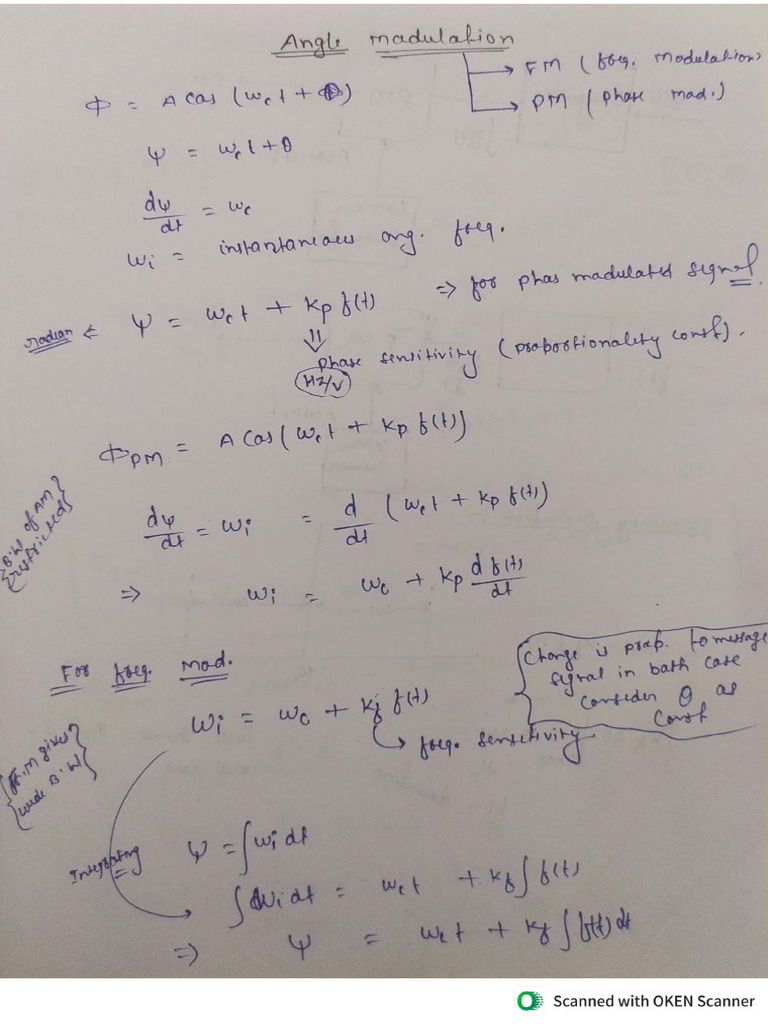 Angle madulation
→ FM (freq. modulation)
→ PM (phase mod.)
Φ = A cos (ω_c t + θ)
ψ = ω_c t + θ
dψ/dt = ω_c
ω_i = instantaneous ang. freq.
radian ← ψ = ω_c t + k_p f(t) ⇒ for phas modulated signal.
⇓
phase sensitivity (proportionality const).
(HZ/V)
Φ_PM = A cos (ω_c t + k_p f(t))
{B.W of AM restricted}
dψ/dt = ω_i = d/dt (ω_c t + k_p f(t))
⇒ ω_i = ω_c + k_p d f(t)/dt
For freq. mod.
{Change is prop. to message
signal in both case
consider θ as
const}
ω_i = ω_c + k_f f(t)
↳ freq. sensitivity
{F.M gives wide B.W}
ψ = ∫ω_i dt
Integrating
∫ω_i dt = ω_c t + k_f ∫ f(t)
⇒ ψ = ω_c t + k_f ∫ f(t) dt
Scanned with OKEN Scanner